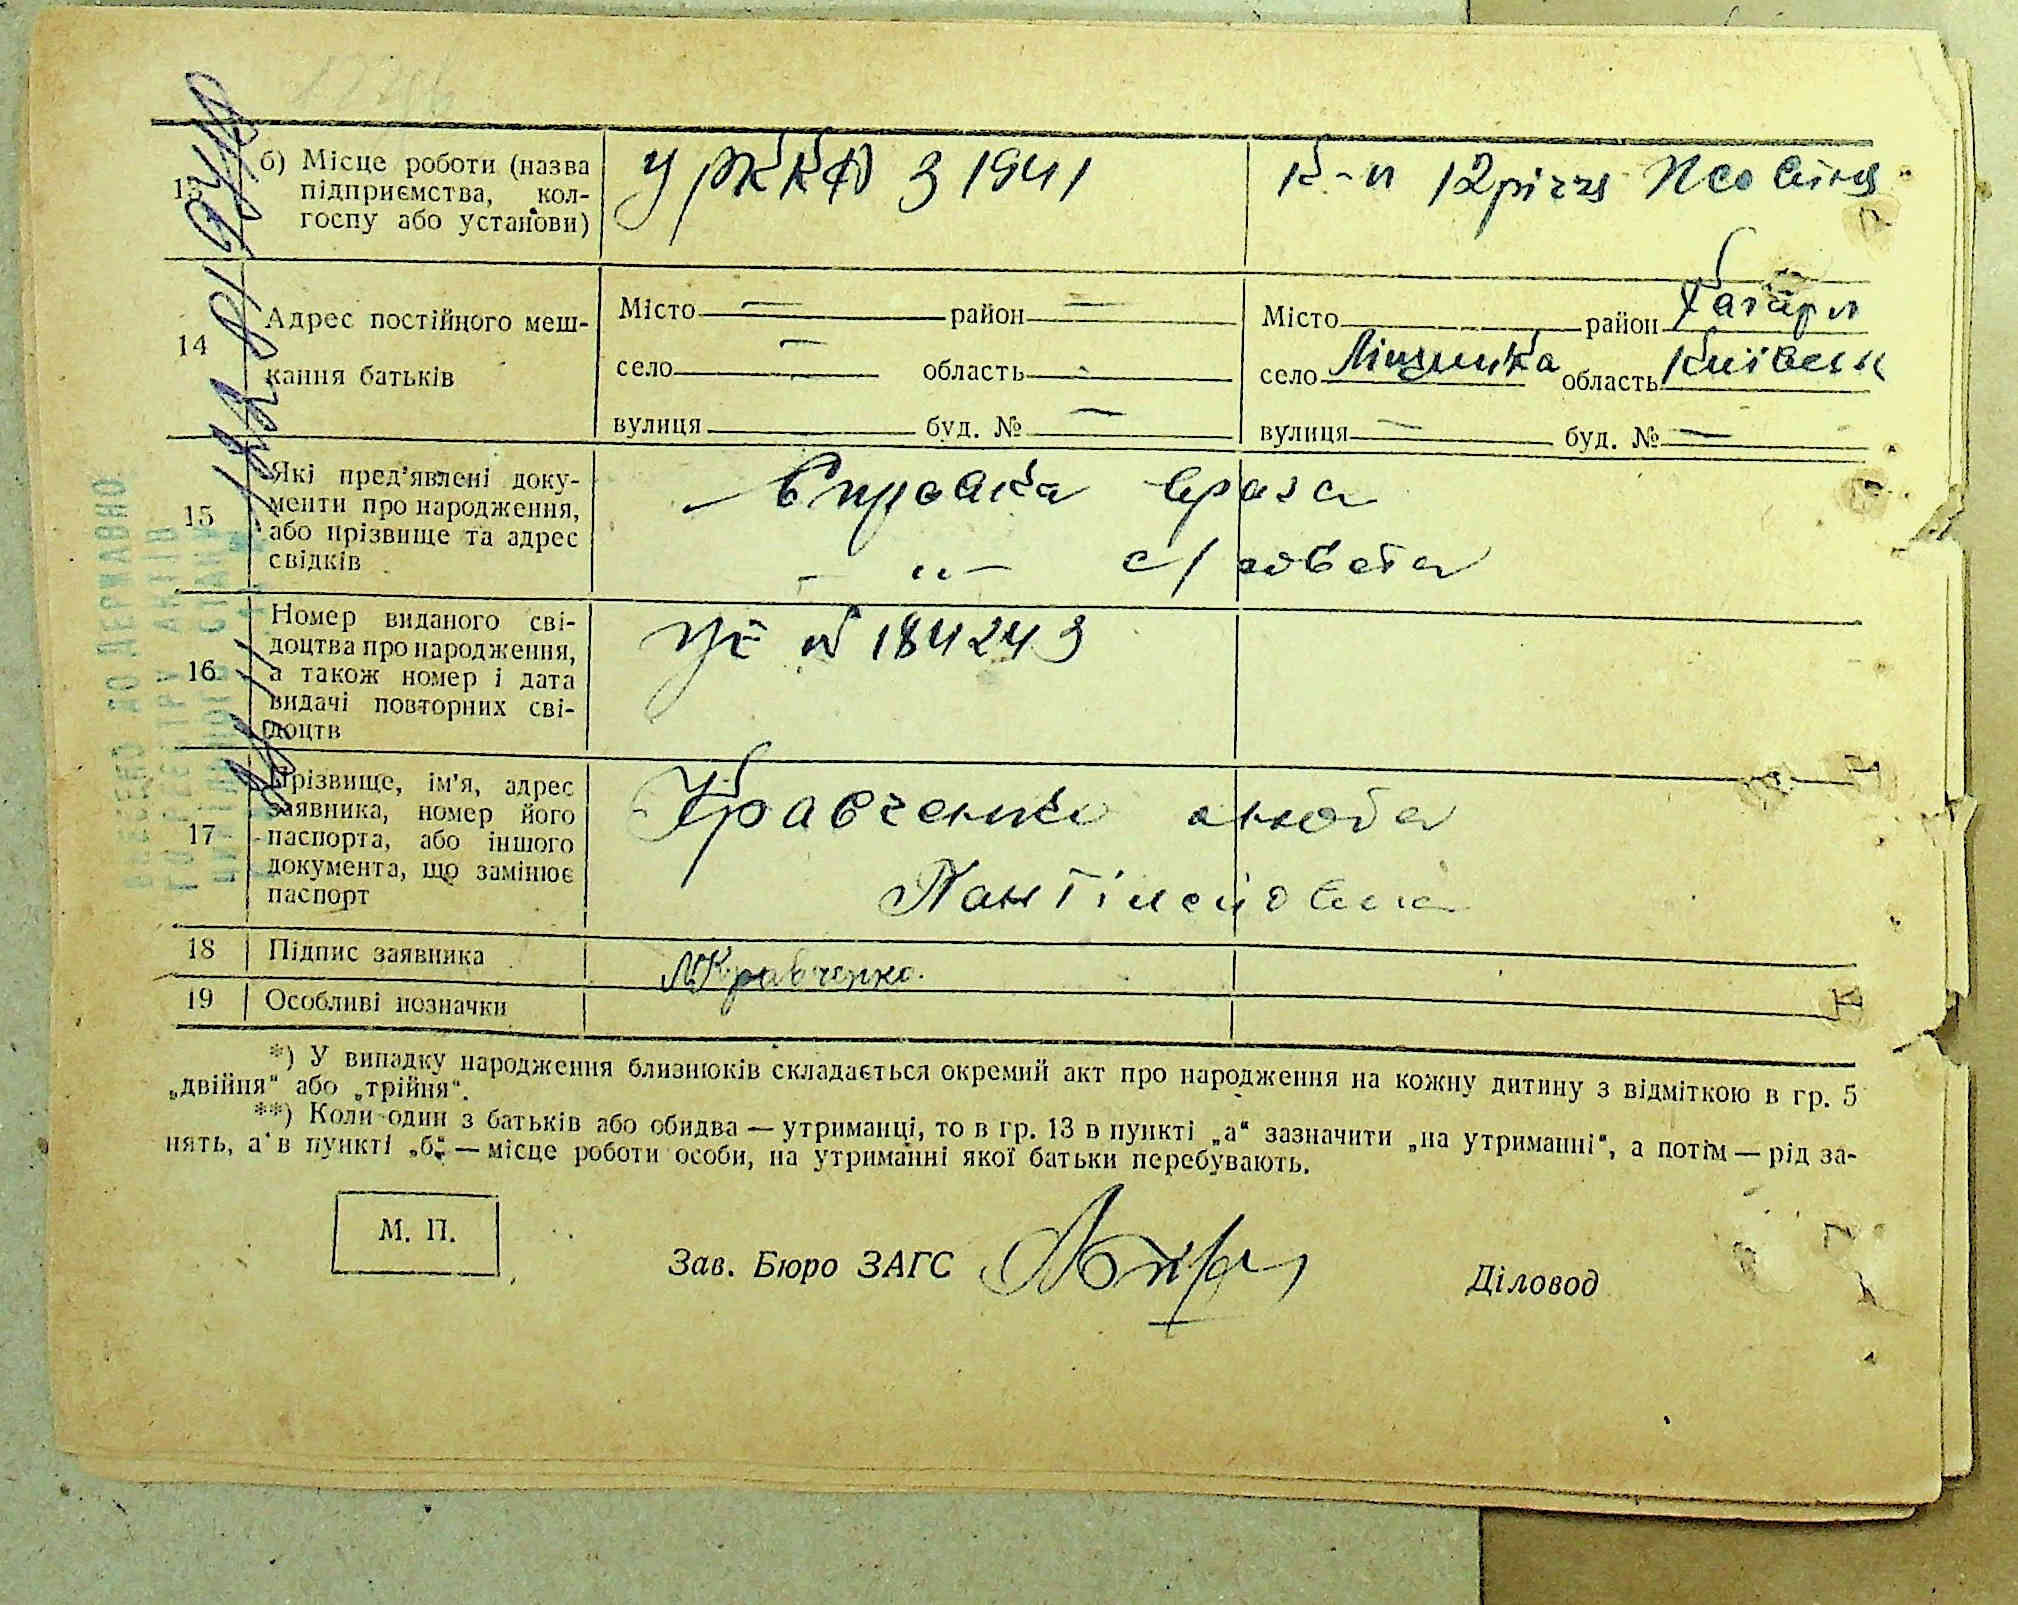 13
б) Місце роботи (назва
підприємства, кол-
госпу або установи)
У РККА З 1941
к-п 12 річчя Жовтня
14
Адрес постійного меш-
кання батьків
Місто — район —
село — область —
вулиця буд. № —
Місто район Кагарл
село Ліщинка область Київськ
вулиця — буд. № —
15
Які пред'явлені доку-
менти про народження,
або прізвище та адрес
свідків
— Справка врача
— „ — с/совета
16
Номер виданого сві-
доцтва про народження,
а також номер і дата
видачі повторних сві-
доцтв
№ 184243
17
Прізвище, ім'я, адрес
заявника, номер його
паспорта, або іншого
документа, що замінює
паспорт
Кравченко Люба
18
Підпис заявника
Л Кравченко.
19
Особливі позначки
*) У випадку народження близнюків складається окремий акт про народження на кожну дитину з відміткою в гр. 5
„двійня“ або „трійня“.
**) Коли один з батьків або обидва — утриманці, то в гр. 13 в пункті „а“ зазначити „на утриманні“, а потім — рід за-
нять, а в пункті „б“ — місце роботи особи, на утриманні якої батьки перебувають.
М. П.
Зав. Бюро ЗАГС
Діловод